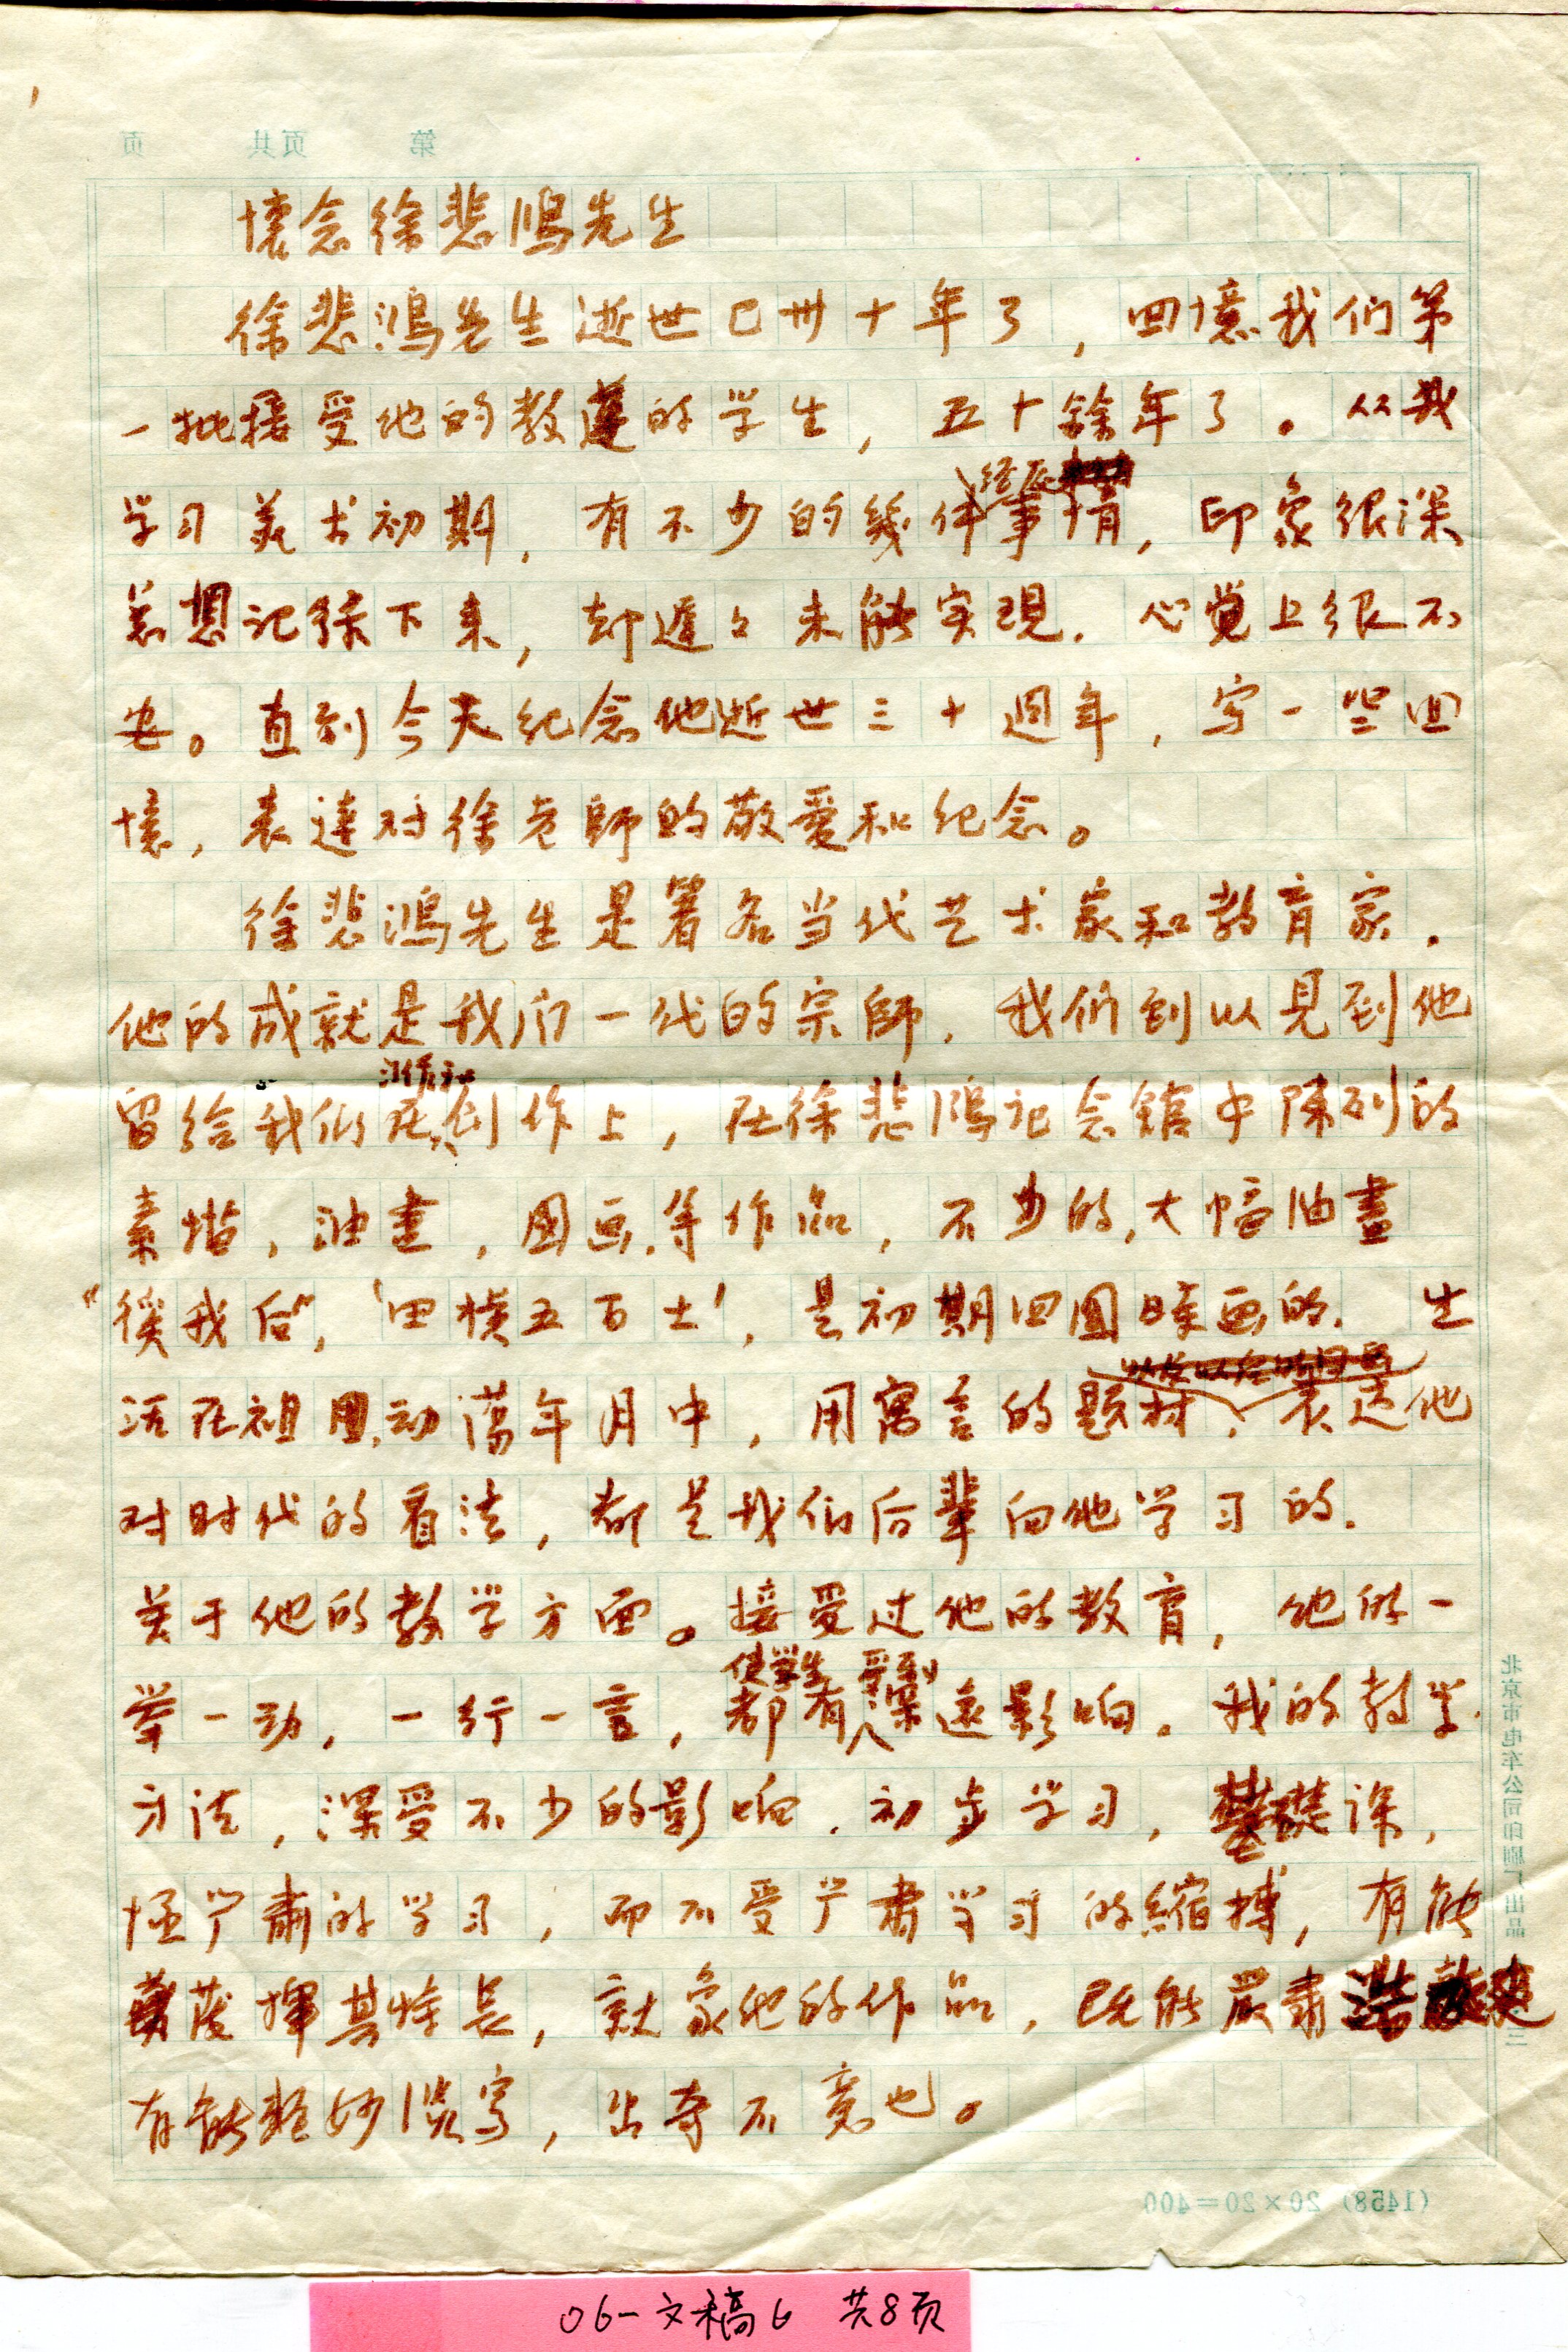 懷念徐悲鴻先生
徐悲鴻先生逝世已卅十年了，回憶我们第
一批接受他的教導的学生，五十餘年了。从我
经历
学习美术初期，有不少的幾件事情，印象很深
总想记錄下来，却遲々未能实現．心覚上很不
安。直到今天纪念他逝世三十週年，写一些回
憶，表達对徐老師的敬爱和纪念。
徐悲鴻先生是著名当代艺术家和教育家．
他的成就是我们一代的宗師．我们到以見到他
习作和
留给我们在创作上，在徐悲鴻记念館中陳列的
素描，油畫，国画．等作品，不少的，大幅油畫
“徯我后”，‘田横五百士’，是初期回國時画的．生
活在祖国动蕩年月中，用寓言的题材、表达他
对时代的看法，都是我们后輩向他学习的．
关于他的教学方面。接受过他的教育，他的一
使学生 受到
举一动，一行一言，都有深遠影响。我的教学
方法，深受不少的影响．初步学习，基礎课，
严肃的学习，而不受严肃学习的縮搏，有能
發揮其特長，就象他的作品，既能嚴肃
有能輕妙 写，出奇不意也。
第 页共 页
北京市电车公司印刷厂出品
(1458) 20×20=400
06-文稿6 共8页